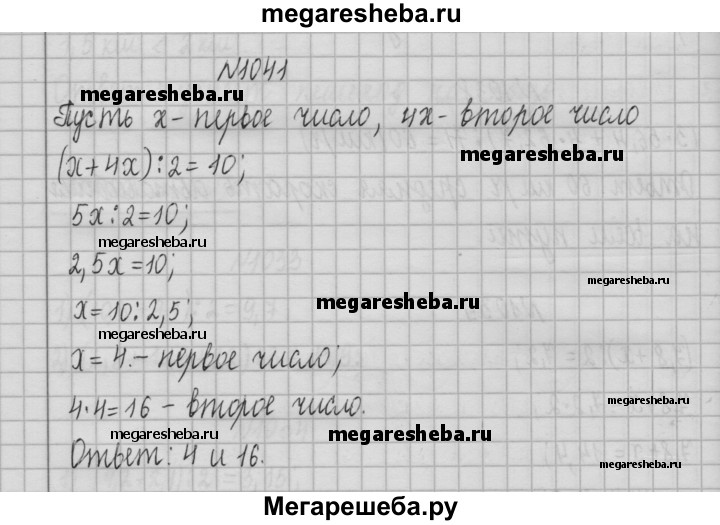 megaresheba.ru
№1041
megaresheba.ru
Пусть x - первое число, 4x - второе число
(x+4x):2=10;
megaresheba.ru
5x:2=10;
megaresheba.ru
2,5x=10;
megaresheba.ru
x=10:2,5;
megaresheba.ru
megaresheba.ru
x=4.- первое число;
4·4=16 - второе число.
megaresheba.ru
megaresheba.ru
megaresheba.ru
Ответ: 4 и 16.
megaresheba.ru
megaresheba.ru
Мегарешеба.ру